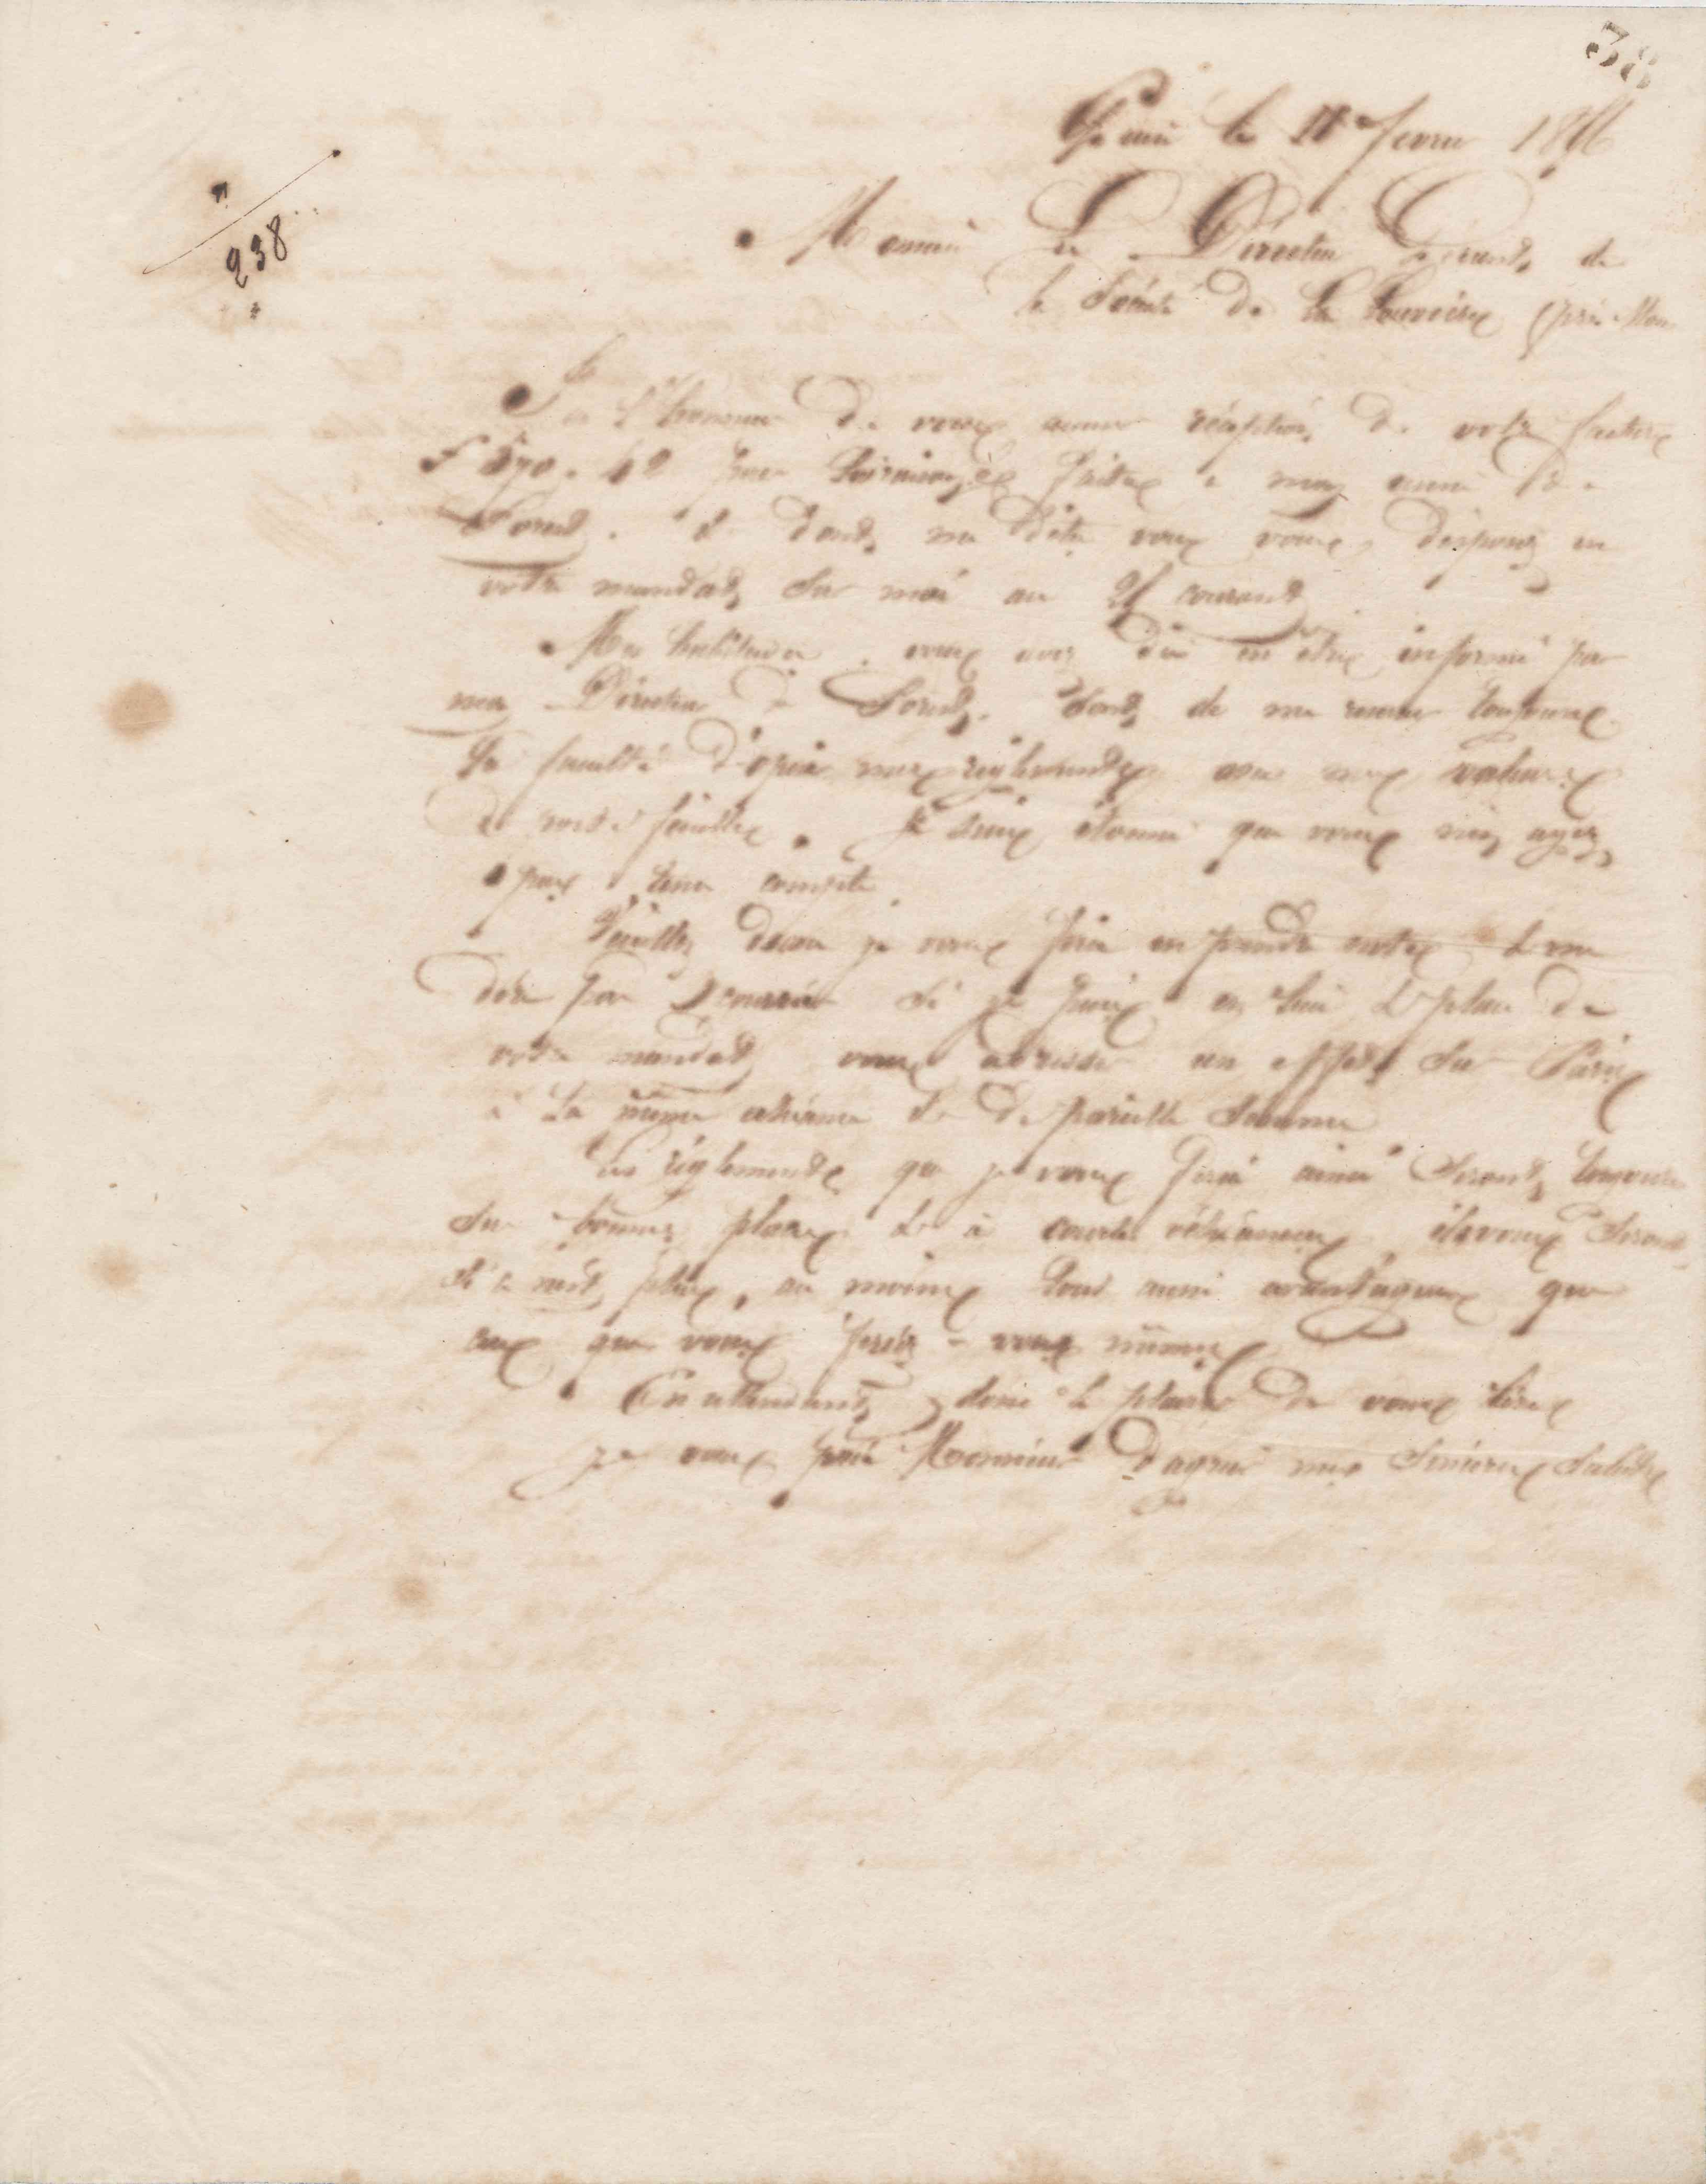 38
le 11 fevrier 18
238
Monsieur Le Directeur Gérant de
la Société De La Louvière (près Mons
J'ai l'honneur De vous réception De votre facture
pour faites à mon usine De
Sorel. Et dont ma dite vous vous disposez en
votre mandat sur moi au courant
Mes habitudes, vous avez dû en être informé par
mon Directeur De Sorel, sont de me réserver toujours
la faculté D'opérer mes règlements avec mes valeurs
De portefeuille. Je suis étonné que vous n'en ayez
pas tenu compte.
Veuillez donc je vous prie en prendre note et me
dire par courrier si je puis en lieu et place De
votre mandat vous adresser un effet sur Paris
à la même échéance et De pareille somme
Les règlements que je vous ferai ainsi seront toujours
sur bonnes places et à courtes échéances, ils vous seront
si ce n'est plus, au moins tout aussi avantageux que
ceux que vous feriez vous même
En attendant donc le plaisir De vous lire
je vous prie Monsieur D'agréer mes sincères saluts